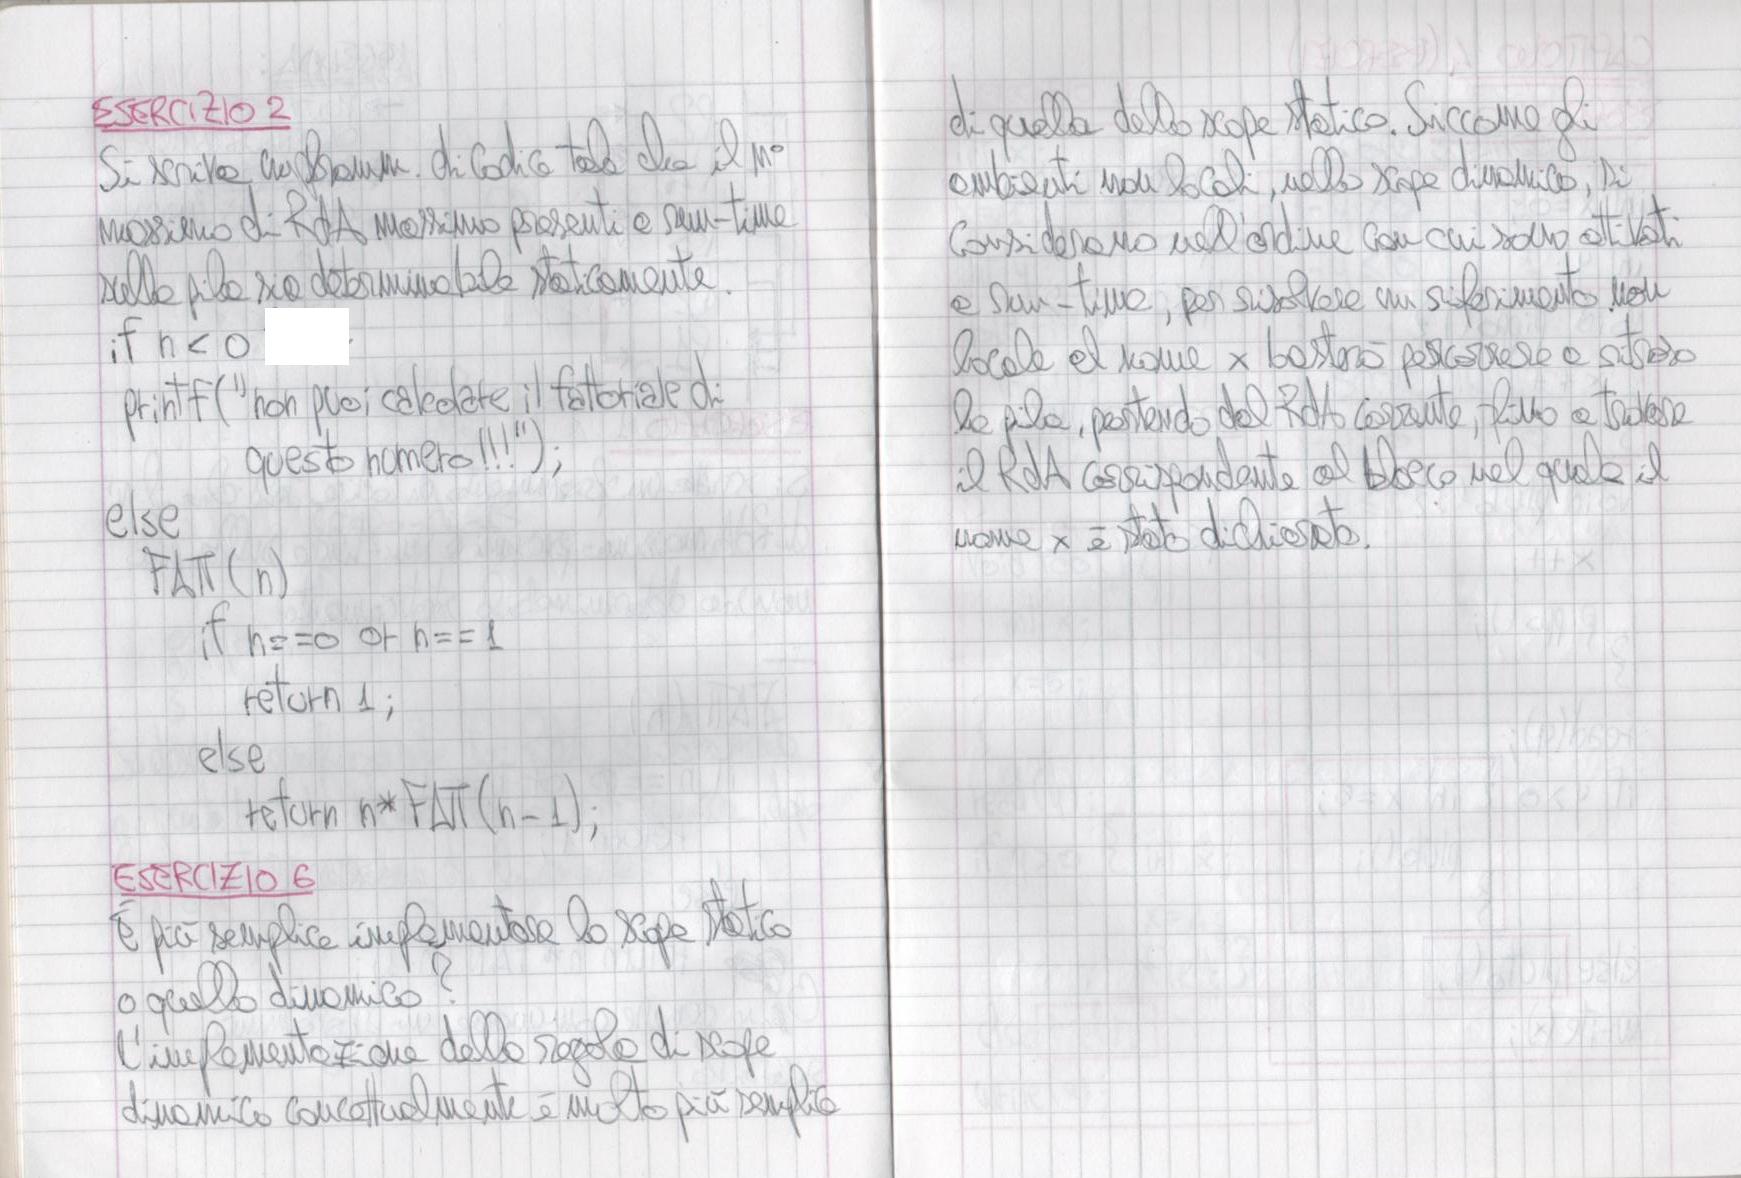 ESERCIZIO 2
Si scriva un framm. di codice tale che il n°
massimo di RdA massimo presenti a run-time
sulla pila sia determinabile staticamente.
if n < 0
printf("non puoi calcolare il fattoriale di
questo numero!!!");
else
FATT(n)
if n==0 or n==1
return 1;
else
return n*FATT(n-1);
ESERCIZIO 6
È più semplice implementare lo scope statico
o quello dinamico?
L'implementazione della regola di scope
dinamico concettualmente è molto più semplice
di quella dello scope statico. Siccome gli
ambienti non locali, nello scope dinamico, si
considerano nell'ordine con cui sono attivati
a run-time, per risolvere un riferimento non
locale al nome x basterà percorrere a ritroso
la pila, partendo dal RdA corrente, fino a trovare
il RdA corrispondente al blocco nel quale il
nome x è stato dichiarato.